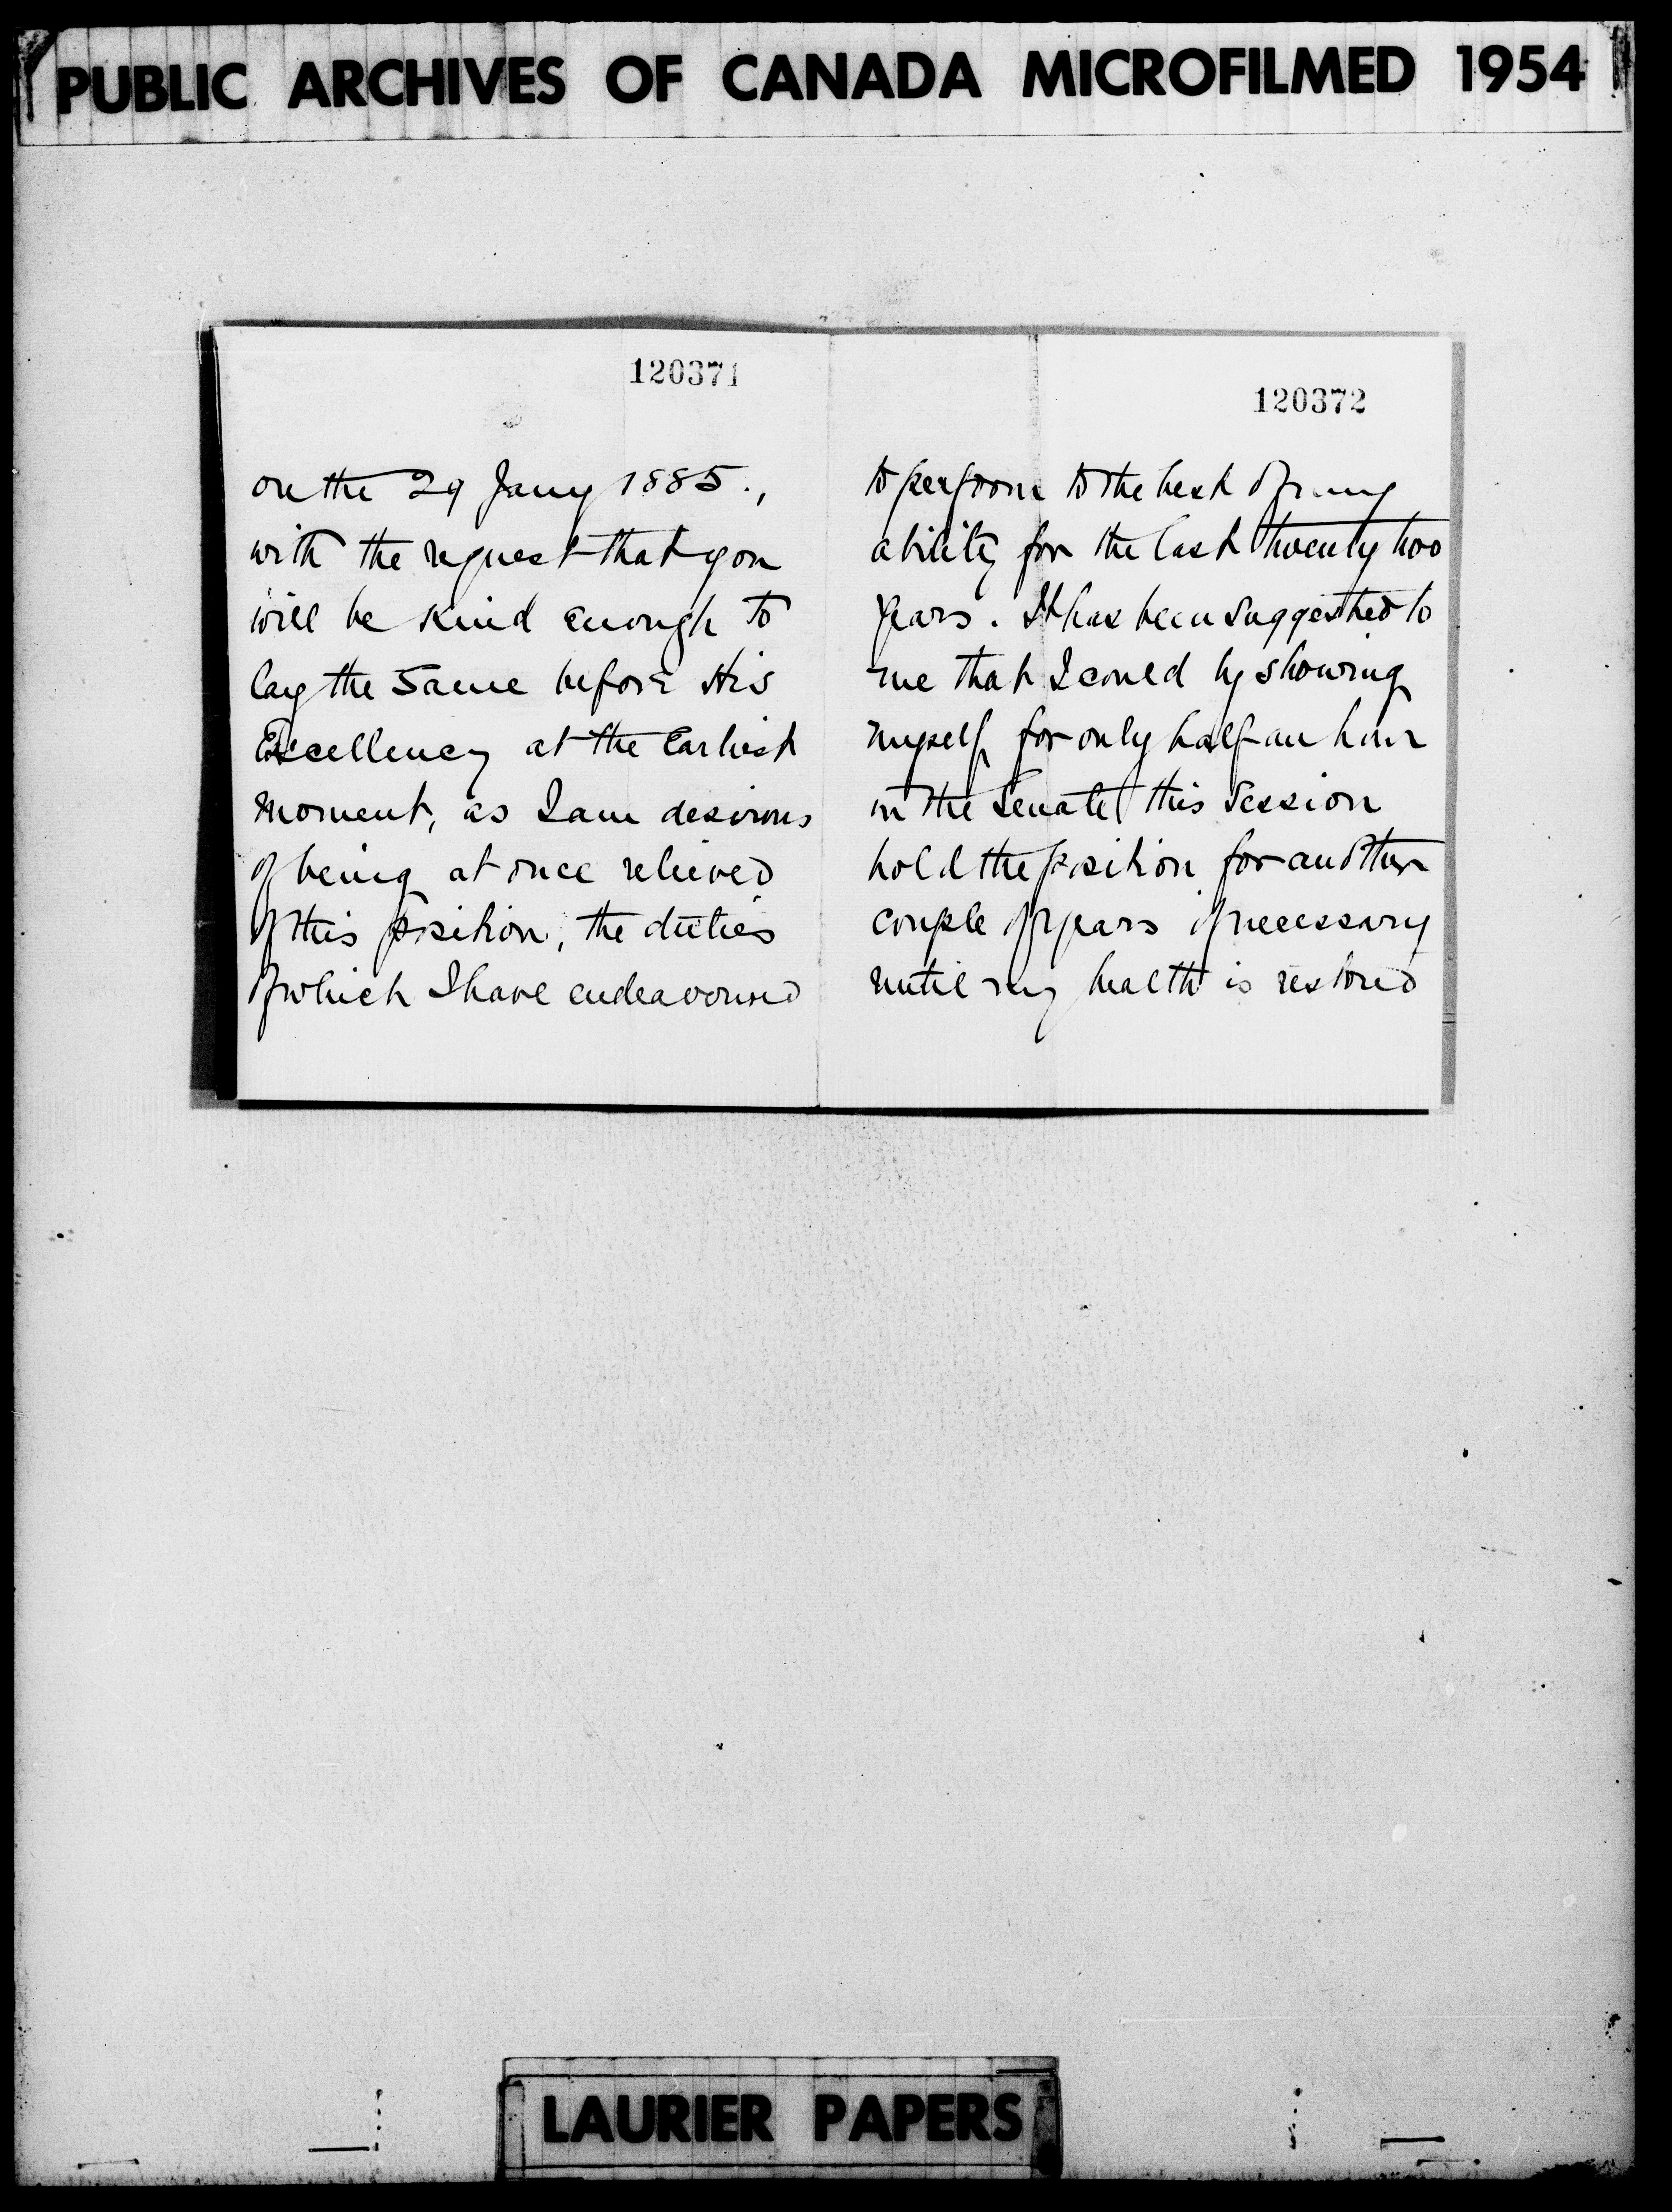 PUBLIC ARCHIVES OF CANADA MICROFILMED 1954
120371
on the 29 Jany 1885.,
with the request that you
will be kind enough to
lay the same before His
Excellency at the Earliest
moment, as I am desirous
of being at once relieved
of this position, the duties
of which I have endeavoured
120372
to perform to the best of my
ability for the last twenty two
years. It has been suggested to
me that I could by showing
myself for only half an hour
in the Senate this Session
hold the position for another
couple of years if necessary
until my health is restored
LAURIER PAPERS